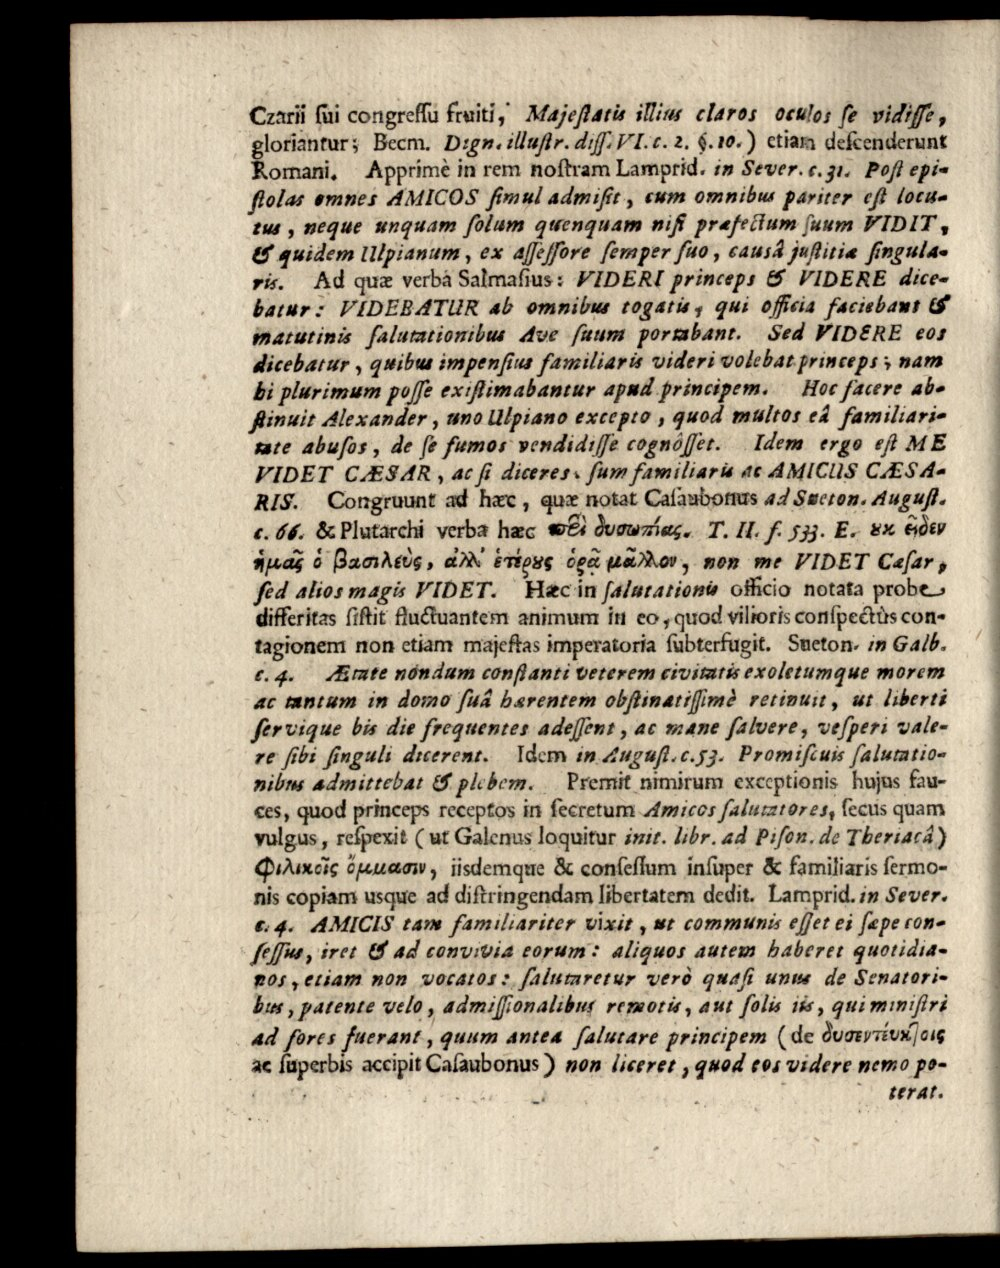 Czarii ſui congreſſu fruiti, Majeſtatis illius claros oculos ſe vidiſſe,
gloriantur; Becm. Dign. illuſtr. diſſ. VI. c. 2. §. 10.) etiam deſcenderunt
Romani. Apprimè in rem noſtram Lamprid. in Sever. c. 31. Poſt epi-
ſtolas omnes AMICOS ſimul admiſit, cum omnibus pariter eſt locu-
tus, neque unquam ſolum quenquam niſi præfectum ſuum VIDIT,
& quidem Ulpianum, ex aſſeſſore ſemper ſuo, causâ juſtitiæ ſingula-
ris. Ad quæ verba Salmaſius: VIDERI princeps & VIDERE dice-
batur: VIDEBATUR ab omnibus togatis, qui officia faciebant &
matutinis ſalutationibus Ave ſuum portabant. Sed VIDERE eos
dicebatur, quibus impenſius familiaris videri volebat princeps; nam
hi plurimum poſſe exiſtimabantur apud principem. Hoc facere ab-
ſtinuit Alexander, uno Ulpiano excepto, quod multos eâ familiari-
tate abuſos, de ſe fumos vendidiſſe cognôſſet. Idem ergo eſt ME
VIDET CÆSAR, ac ſi diceres, ſum familiaris ac AMICUS CÆSA-
RIS. Congruunt ad hæc, quæ notat Caſaubonus ad Sueton. Auguſt.
c. 66. & Plutarchi verba hæc περὶ δυσωπίας. T. II. f. 533. E. ȣκ εἶδεν
ἡμᾶς ὁ βασιλεὺς, ἀλλ' ἑτέρȣς ὁρᾷ μᾶλλον, non me VIDET Cæſar,
ſed alios magis VIDET. Hæc in ſalutationis officio notata probe
differitas ſiſtit fluctuantem animum in eo, quod vilioris conſpectùs con-
tagionem non etiam majeſtas imperatoria ſubterfugit. Sueton. in Galb.
c. 4. Ætate nondum conſtanti veterem civitatis exoletumque morem
ac tantum in domo ſuâ hærentem obſtinatiſſimè retinuit, ut liberti
ſervique bis die frequentes adeſſent, ac mane ſalvere, veſperi vale-
re ſibi ſinguli dicerent. Idem in Auguſt. c. 53. Promiſcuis ſalutatio-
nibus admittebat & plebem. Premit nimirum exceptionis hujus fau-
ces, quod princeps receptos in ſecretum Amicos ſalutatores, ſecus quam
vulgus, reſpexit (ut Galenus loquitur init. libr. ad Piſon. de Theriacâ)
Φιλικοῖς ὄμμασιν, iisdemque & conſeſſum inſuper & familiaris ſermo-
nis copiam usque ad diſtringendam libertatem dedit. Lamprid. in Sever.
c. 4. AMICIS tam familiariter vixit, ut communis eſſet ei ſæpe con-
ſeſſus, iret & ad convivia eorum: aliquos autem haberet quotidia-
nos, etiam non vocatos: ſalutaretur verò quaſi unus de Senatori-
bus, patente velo, admiſſionalibus remotis, aut ſolis iis, qui miniſtri
ad fores fuerant, quum antea ſalutare principem (de δυσεντεύκτοις
ac ſuperbis accipit Caſaubonus) non liceret, quod eos videre nemo po-
terat.